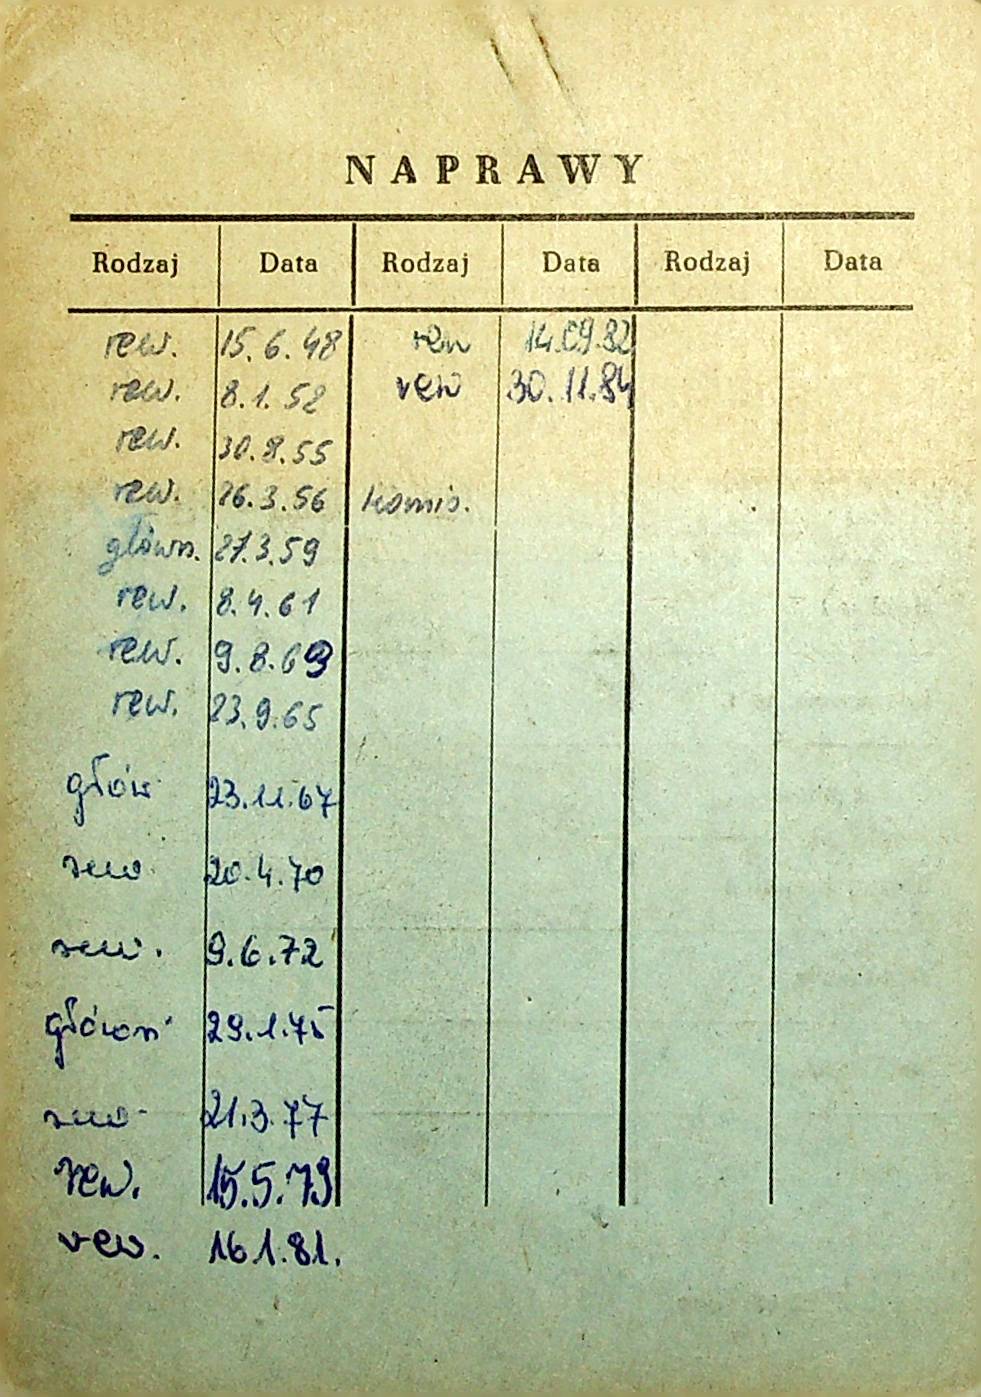 NAPRAWY
Rodzaj Data Rodzaj Data Rodzaj Data
rew. 15.6.48 rew 14.09.82
rew. 8.1.52 rew 30.11.84
rew. 30.8.55
rew. 26.3.56 komis.
główn. 27.3.59
rew. 8.4.61
rew. 9.8.63
rew. 23.9.65
głów 23.11.67
rew. 20.4.70
rew. 9.6.72
główn 29.1.75
rew. 21.3.77
rew. 15.5.79
rew. 16.1.81.